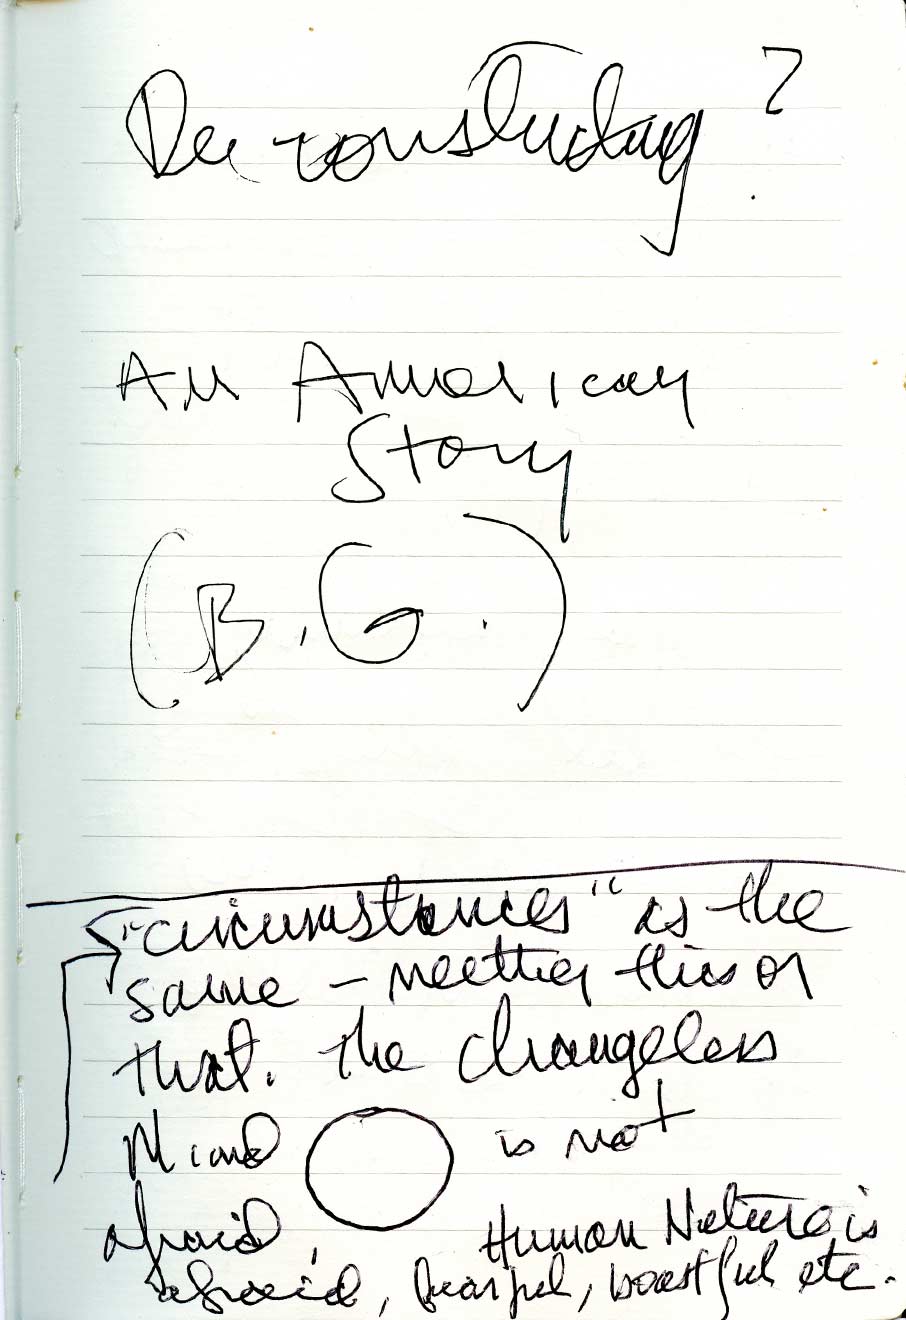 Deconstructing?
An American
Story
(B.G.)
"circumstances" is the
same – neither this or
that. The changeless
Mind is not
afraid, Human Nature is
afraid, fearful, boastful etc.